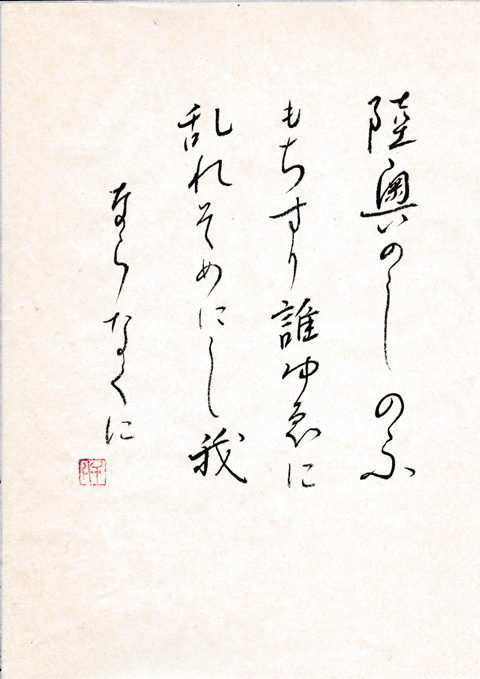 陸奥のしのふ
もちすり誰ゆゑに
乱れそめにし我
ならなくに